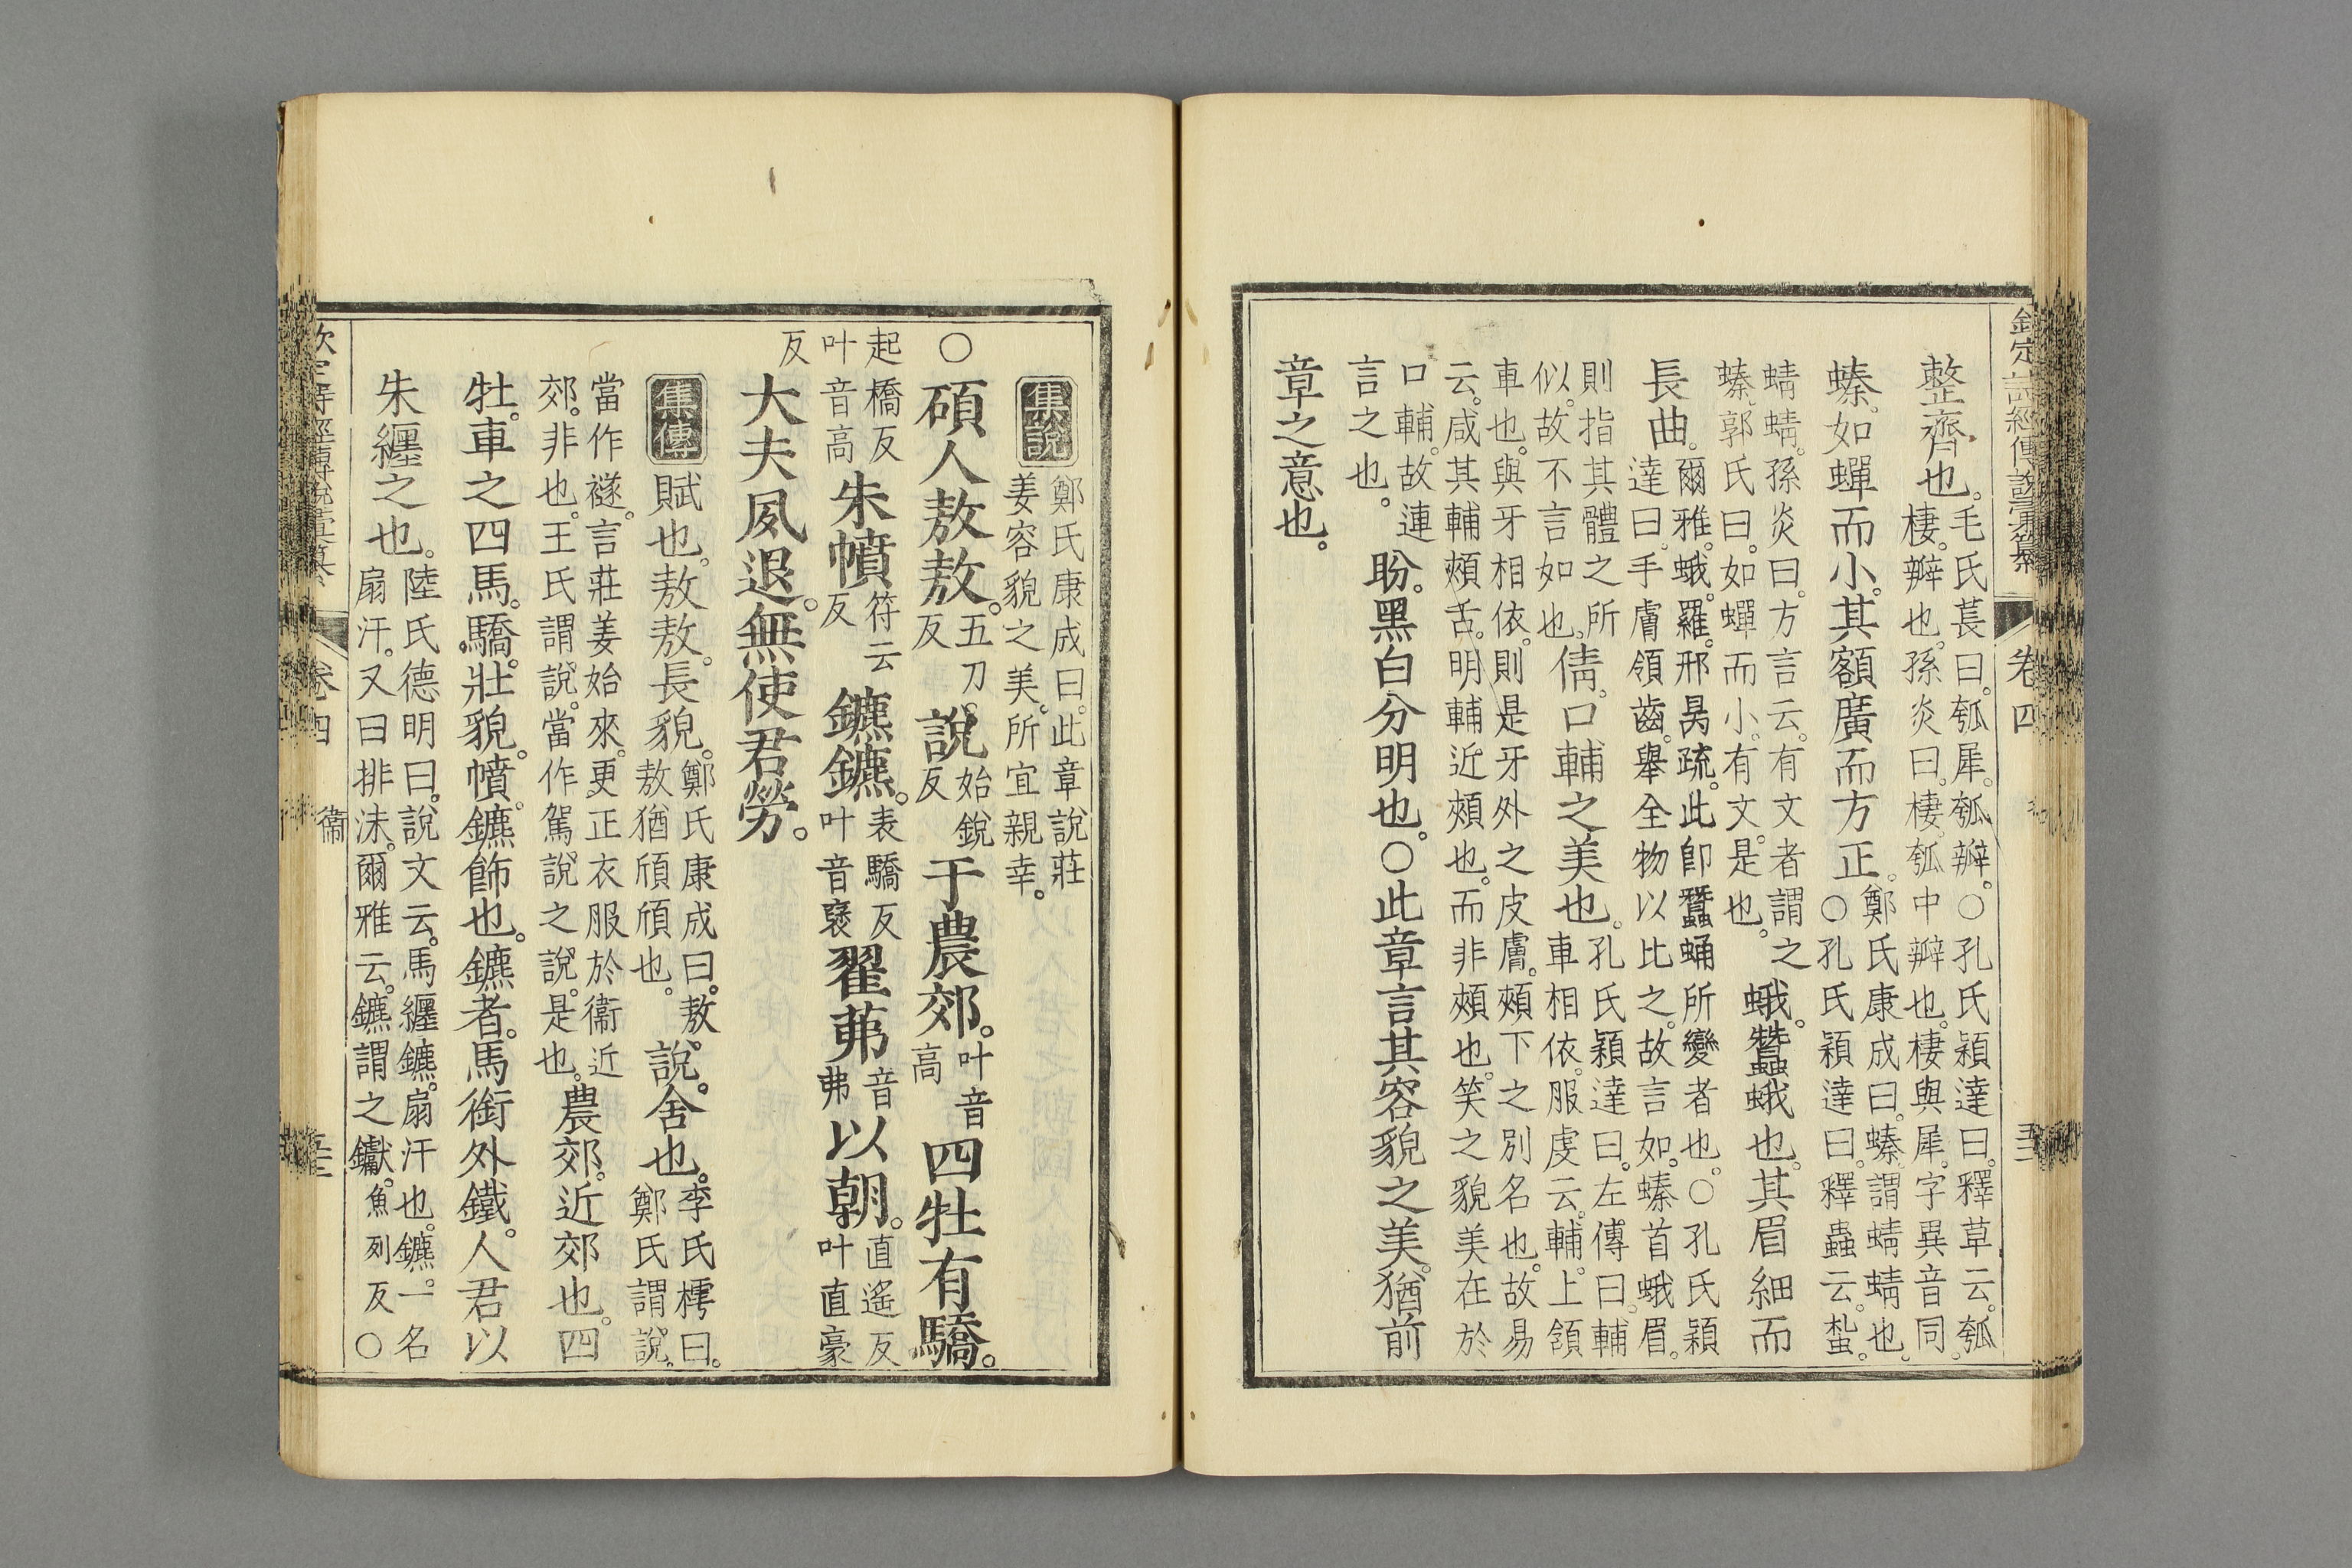 欽定詩經傳說彙纂 卷四
整齊也。毛氏萇曰。瓠犀。瓠瓣。○孔氏穎達曰。釋草云。瓠
棲。瓣也。孫炎曰。棲。瓠中瓣也。棲與犀。字異音同。
螓。如蟬而小。其額廣而方正。鄭氏康成曰。螓。謂蜻蜻也。
○孔氏穎達曰。釋蟲云。蚻。
蜻蜻。孫炎曰。方言云。有文者謂之
螓。郭氏曰。如蟬而小。有文。是也。
蛾。蠶蛾也。其眉細而
長曲。爾雅。蛾。羅。邢昺疏。此卽蠶蛹所變者也。○孔氏穎
達曰。手膚領齒。舉全物以比之。故言如。螓首蛾眉。
則指其體之所
似。故不言如也。
倩。口輔之美也。孔氏穎達曰。左傳曰。輔
車相依。服虔云。輔。上頷
車也。與牙相依。則是牙外之皮膚。頰下之別名也。故易
云。咸其輔頰舌。明輔近頰也。而非頰也。笑之貌美在於
口輔。故連
言之也。
盼。黑白分明也。○此章言其容貌之美。猶前
章之意也。
集說 鄭氏康成曰。此章說莊
姜容貌之美。所宜親幸。
○碩人敖敖。五刀反 說始銳反 于農郊。叶音高 四牡有驕。
起橋反
叶音高
朱幩符云反 鑣鑣。表驕反 叶音褒 翟茀音弗 以朝。直遙反 叶直豪
反 大夫夙退。無使君勞。
集傳 賦也。敖敖。長貌。鄭氏康成曰。敖
敖猶頎頎也。
說。舍也。李氏樗曰。
鄭氏謂說。
當作襚。言莊姜始來。更正衣服於衞近
郊。非也。王氏謂說。當作駕說之說。是也。
農郊。近郊也。四
牡。車之四馬。驕。壯貌。幩。鑣飾也。鑣者。馬銜外鐵。人君以
朱纒之也。陸氏德明曰。說文云。馬纒鑣。扇汗也。鑣。一名
扇汗。又曰排沬。爾雅云。鑣謂之钀。魚列反○
卷四 衞